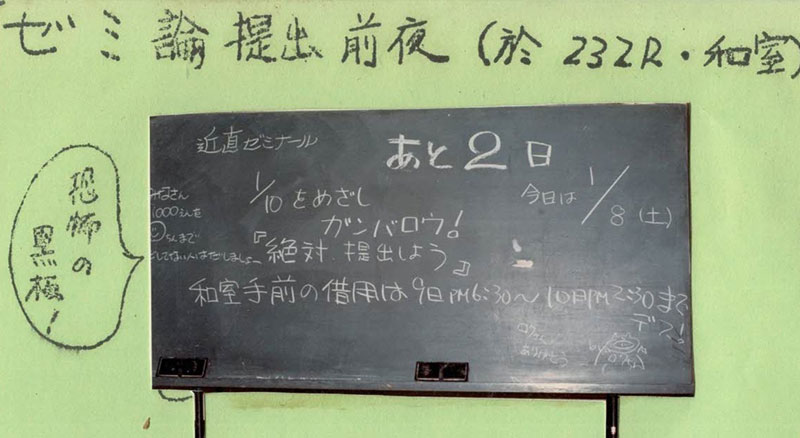 ゼミ論提出前夜(於 232R・和室)
恐怖の
黒板!
近直ゼミナール
あと2日
今日は 1/8(土)
1/10をめざし
ガンバロウ!
『絶対、提出しよう』
みなさん
1000えんを
までに
和室手前の借用は9日PM6:30〜10日PM2:30まで
デス!
ありがとう